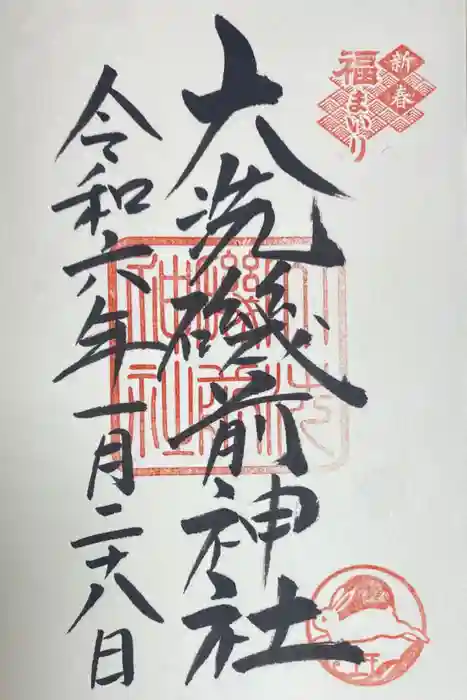 新春
福まいり
大洗磯前神社
令和六年一月二十八日